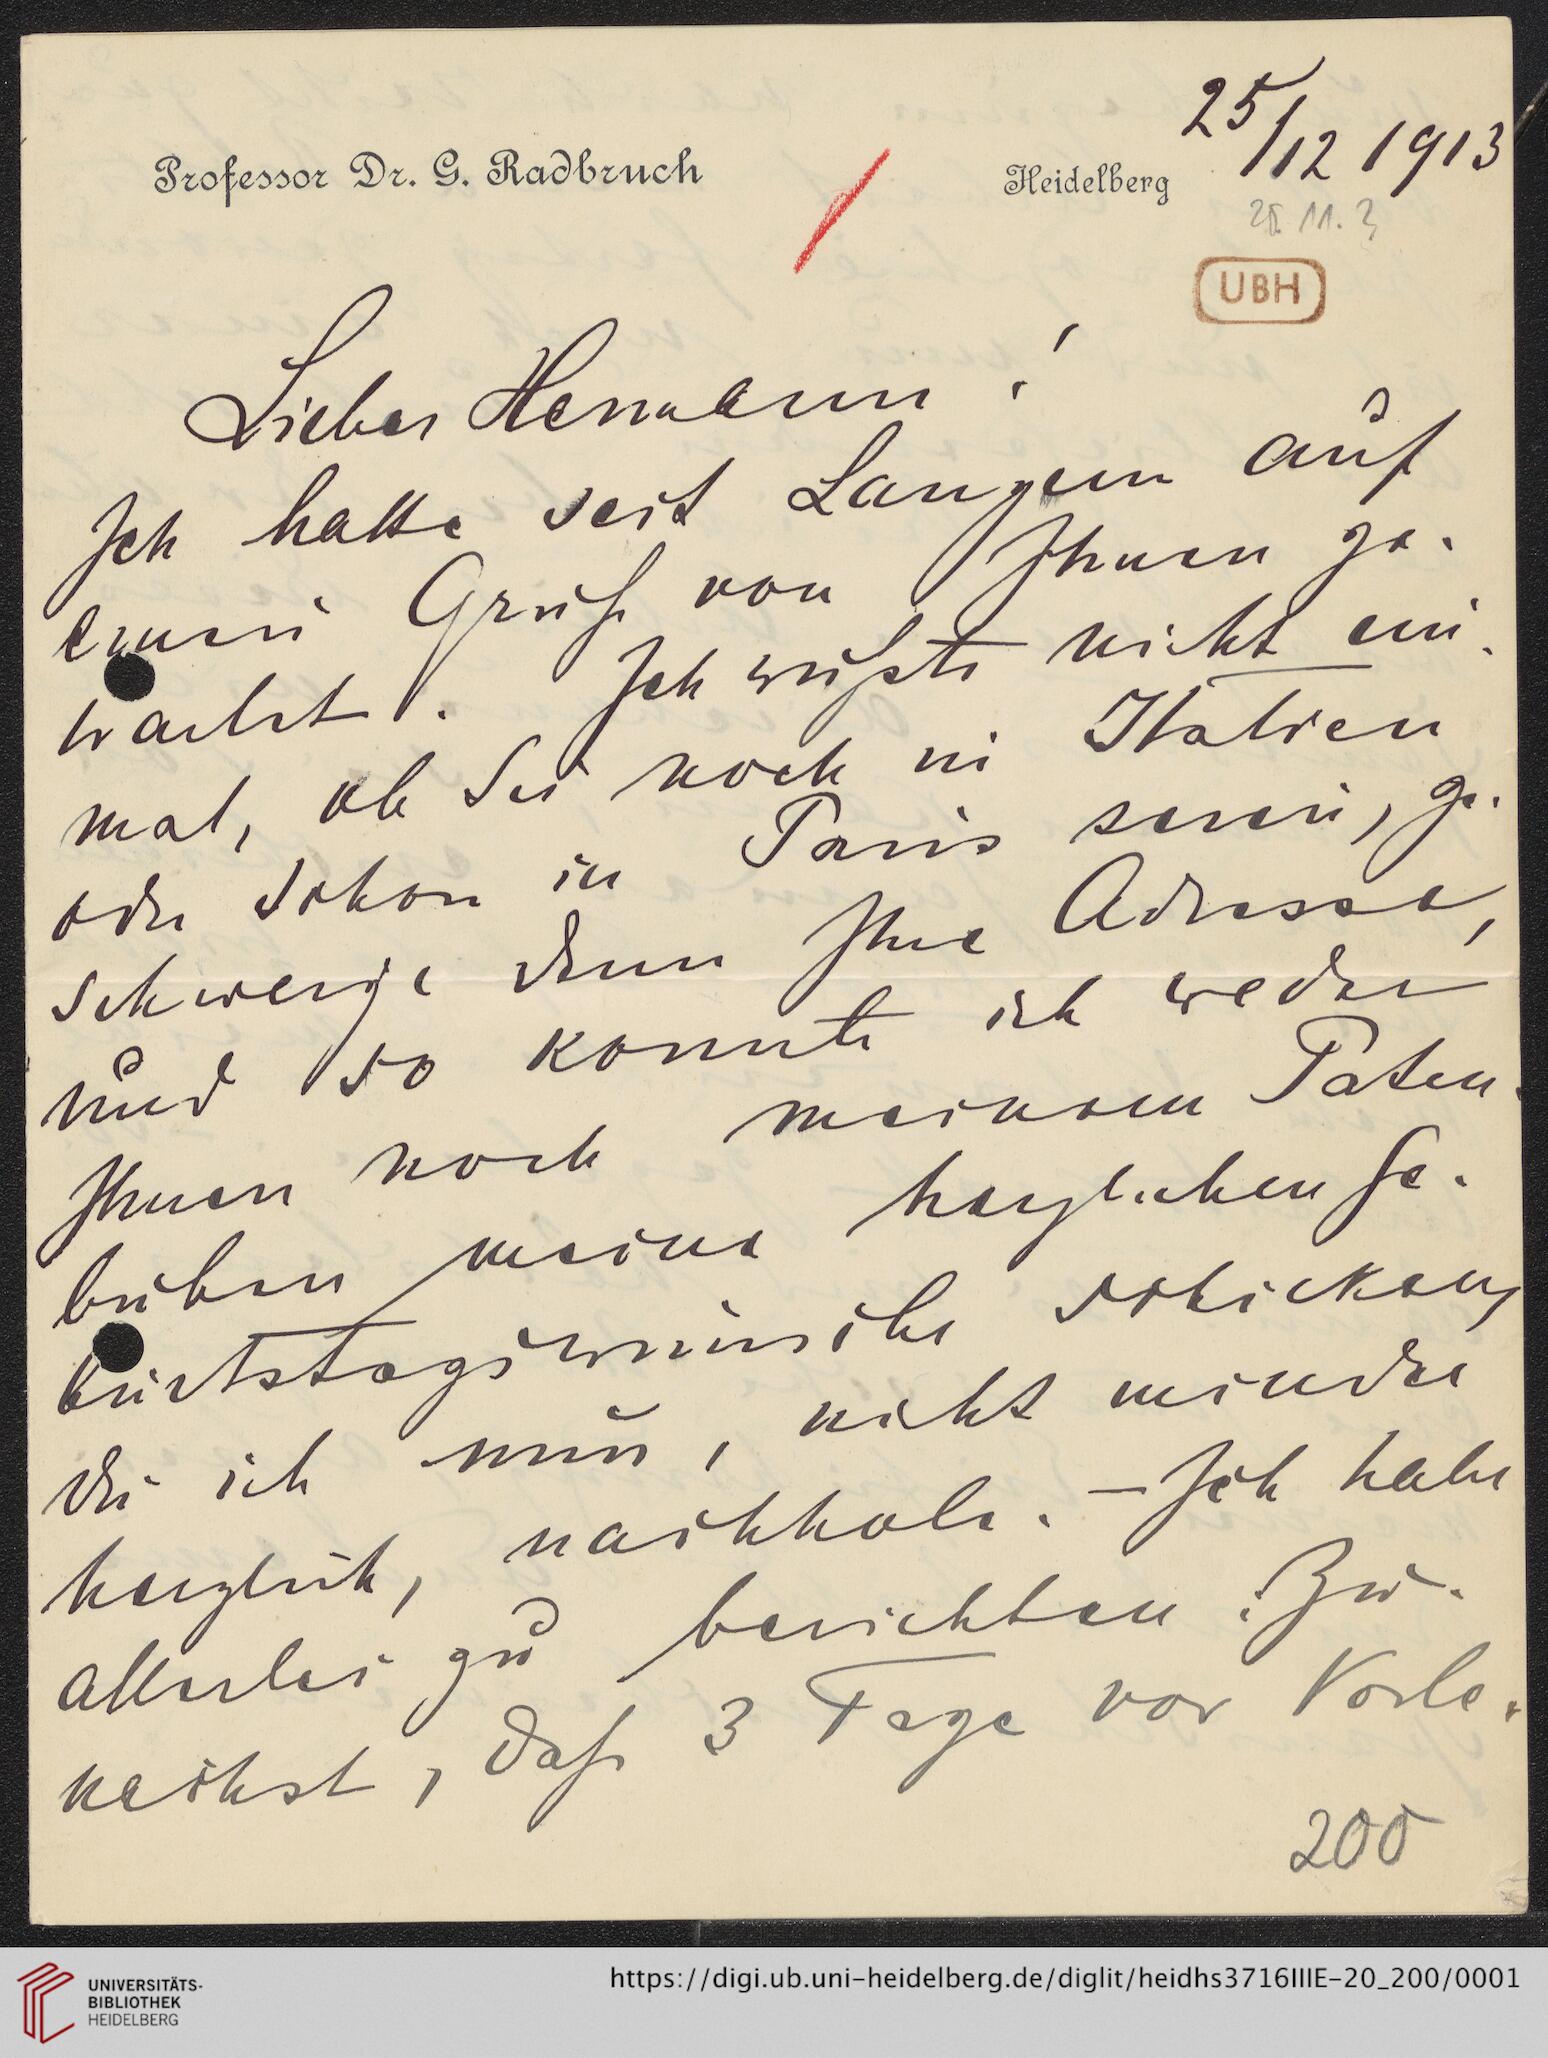 25/12 1913
Professor Dr. G. Radbruch
Heidelberg
25. 11. ?
UBH
Lieber Hermann!
Ich hatte seit Langem auf
einen Gruß von Ihnen ge-
wartet. Ich wußte nicht ein-
mal, ob Sie noch in Italien
oder schon in Paris seien, ge-
schweige denn Ihre Adresse,
und so konnte ich weder
Ihnen noch meinem Paten-
buben meine herzlichen Ge-
burtstagswünsche schicken,
die ich nun, nicht minder
herzlich, nachhole. – Ich habe
allerlei zu berichten: Zu-
nächst, daß 3 Tage vor Vorle-
200
UNIVERSITÄTS-
BIBLIOTHEK
HEIDELBERG
https://digi.ub.uni-heidelberg.de/diglit/heidhs3716IIIE-20_200/0001